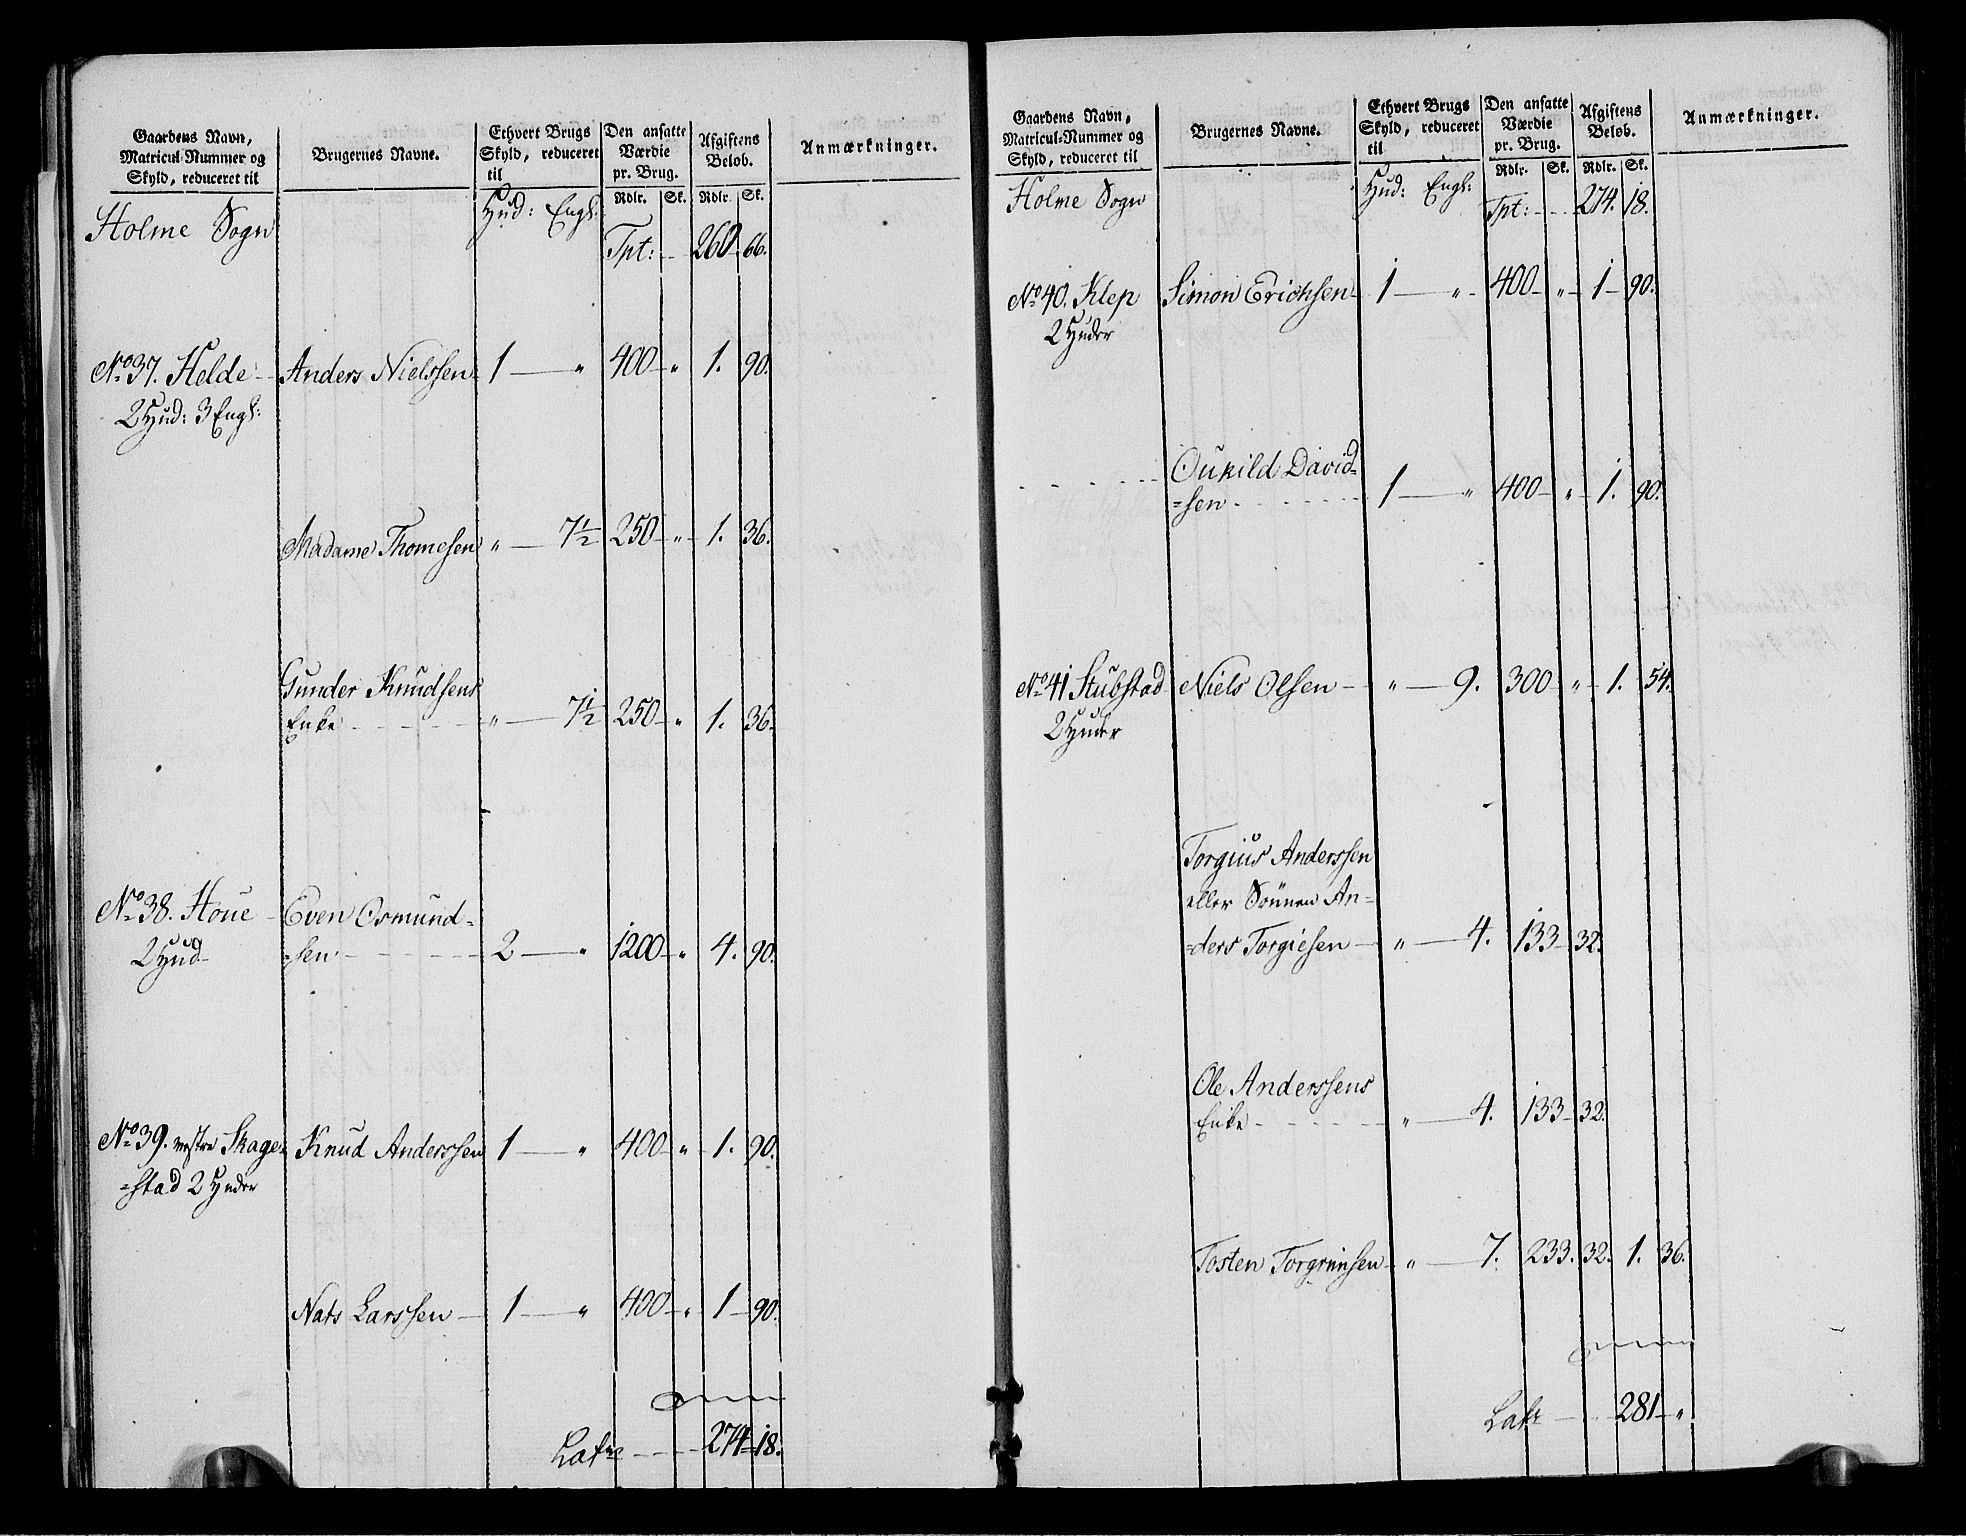 Gaardens Navn, Matricul-Nummer og Skyld, reduceret til | Brugernes Navne. | Ethvert Brugs Skyld, reduceret til | Den ansatte Værdie pr. Brug. | Afgiftens Beløb. | Anmærkninger.
Rdlr. Sk. Rdlr. Sk.
Holme Sogn Hud: Engl:
Tpt: 260 66.
No 37. Helde Anders Nielssen 1 — " 400 " 1. 90.
2 Hud: 3 Engl:
Madame Thomesen " — 7½ 250 " 1. 36.
Gunder Knudsens
Enke " — 7½ 250 " 1. 36.
No 38. Houe Even Osmund=
2 Hud =sen 2 — " 1200 " 4. 90.
No 39. vestre Skage= Knud Anderssen 1 — " 400 " 1. 90.
=stad 2 Huder
Nats Larssen 1 — " 400 " 1 90.
Lats 274 18.
Gaardens Navn, Matricul-Nummer og Skyld, reduceret til | Brugernes Navne. | Ethvert Brugs Skyld, reduceret til | Den ansatte Værdie pr. Brug. | Afgiftens Beløb. | Anmærkninger.
Rdlr. Sk. Rdlr. Sk.
Holme Sogn Hud: Engl:
Tpt: 274. 18.
No 40. Klep Simon Erichsen 1 — " 400 " 1 90.
2 Huder
Oukild David=
=sen 1 — " 400 " 1. 90.
No 41 Stubstad Niels Olsen " — 9. 300 " 1. 54.
2 Huder
Torgius Anderssen
eller Sønnen An=
=ders Torgiesen " — 4. 133 32.
Ole Anderssens
Enke " — 4. 133 32.
Tosten Torgrimsen " — 7. 233. 32. 1. 36.
Lats 281 "